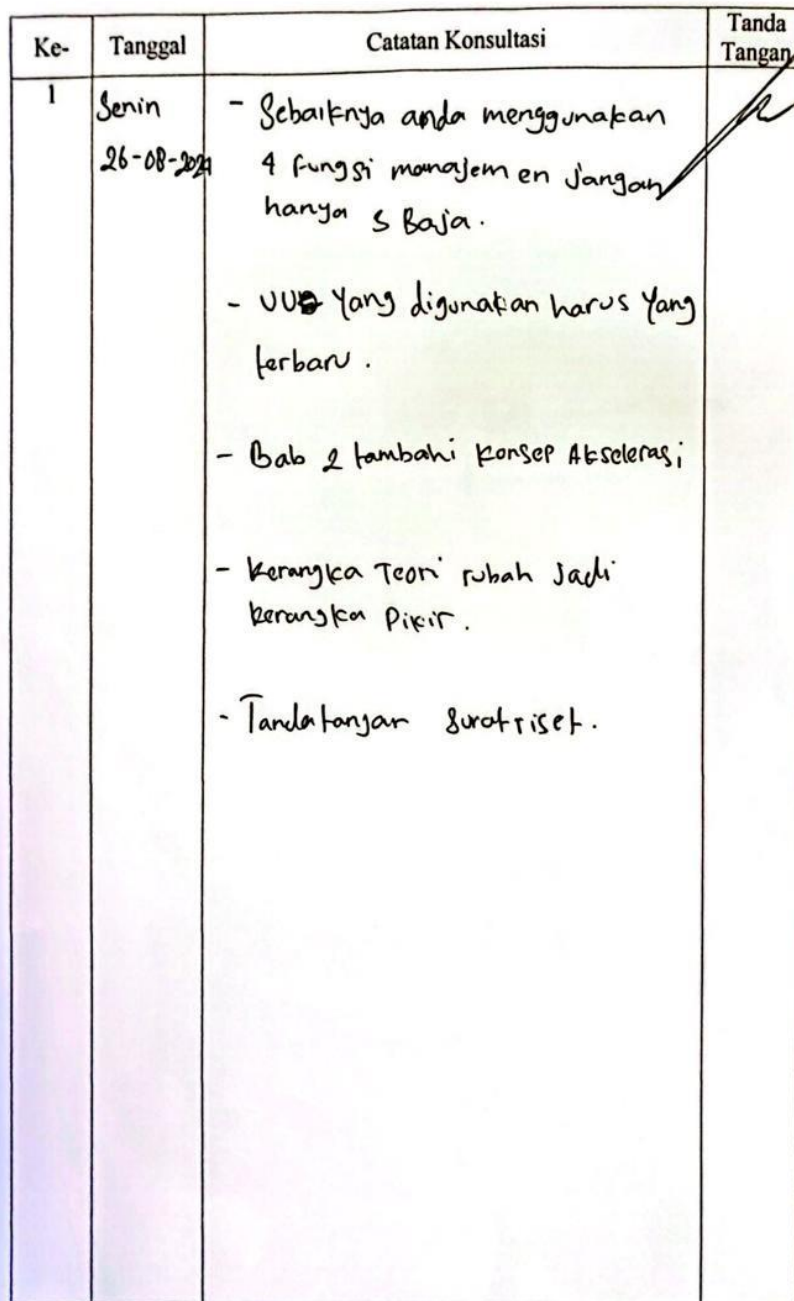 Ke- Tanggal Catatan Konsultasi Tanda Tangan
1 Senin - Sebaiknya anda menggunakan
26-08-2024 4 fungsi manajemen jangan
hanya s Baja.
- UU yang digunakan harus yang
terbaru.
- Bab 2 tambahi konsep Akselerasi
- kerangka Teori rubah jadi
kerangka Pikir.
- Tandatangan surat riset.